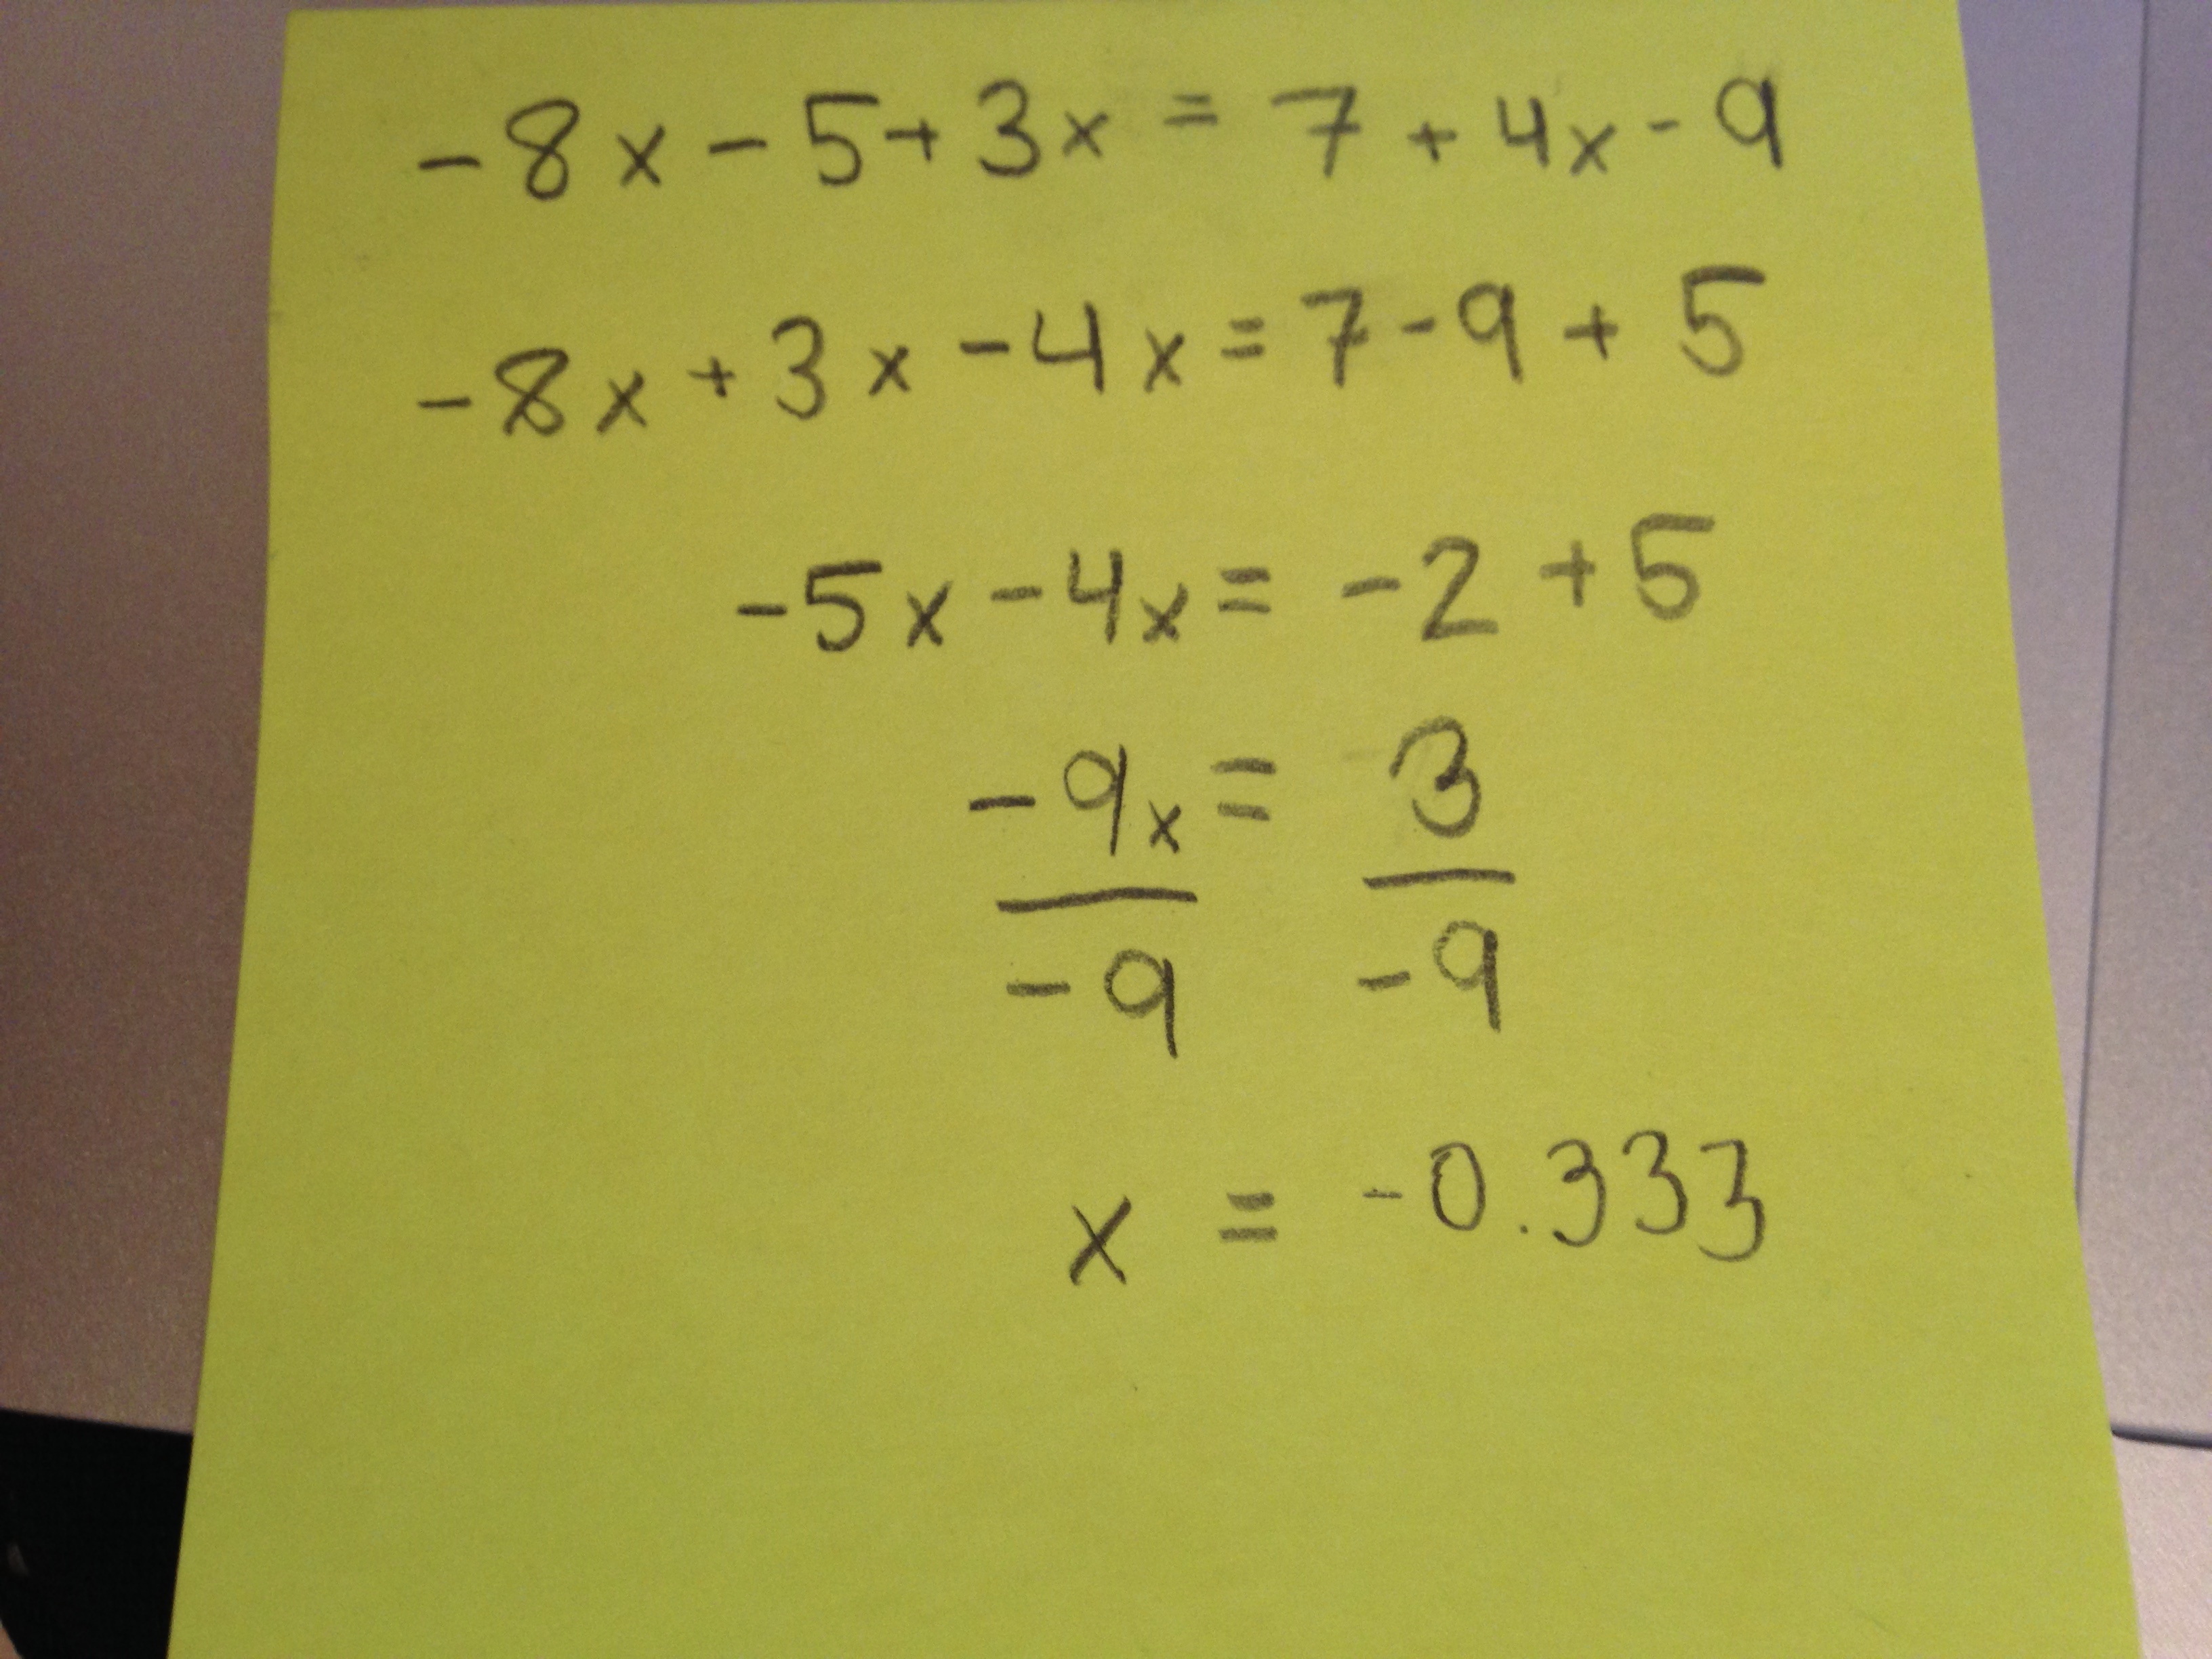 -8x - 5 + 3x = 7 + 4x - 9
-8x + 3x - 4x = 7 - 9 + 5
-5x - 4x = -2 + 5
-9x = 3
-9 -9
x = -0.333